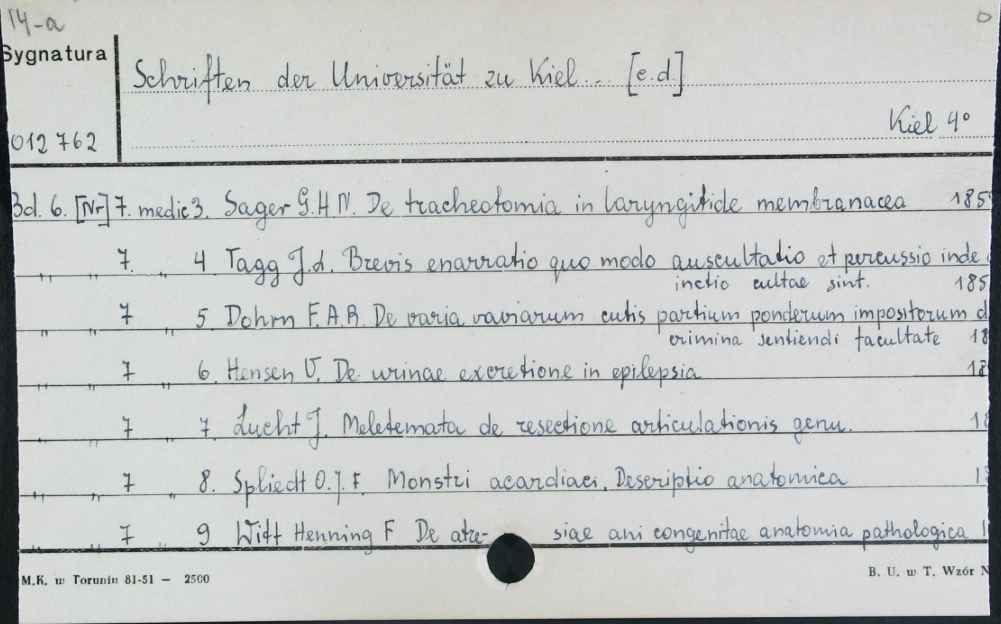 14-a
Sygnatura
Schriften der Universität zu Kiel... [e.d.]
Kiel 4°
012 762
Bd. 6. [Nr] 7. medic 3. Sager G.H.N. De tracheotomia in laryngitide membranacea 185
„ „ 7. „ 4 Tagg J.d. Brevis enarratio quo modo auscultatio et percussio inde
inctio cultae sint. 185
„ „ 7 „ 5. Dohrn F.A.R. De varia variarum cutis partium ponderum impositorum d
crimina sentiendi facultate 18
„ „ 7 „ 6. Hensen V. De urinae excretione in epilepsia 18
„ „ 7 „ 7. Lucht J. Meletemata de resectione articulationis genu. 1
„ „ 7 „ 8. Spliedt O.J.F. Monstri acardiaci. Descriptio anatomica 1
7 9 Witt Henning F De atre- siae ani congenitae anatomia pathologica 1
M.K. w Toruniu 81-51 — 2500
B. U. w T. Wzór N